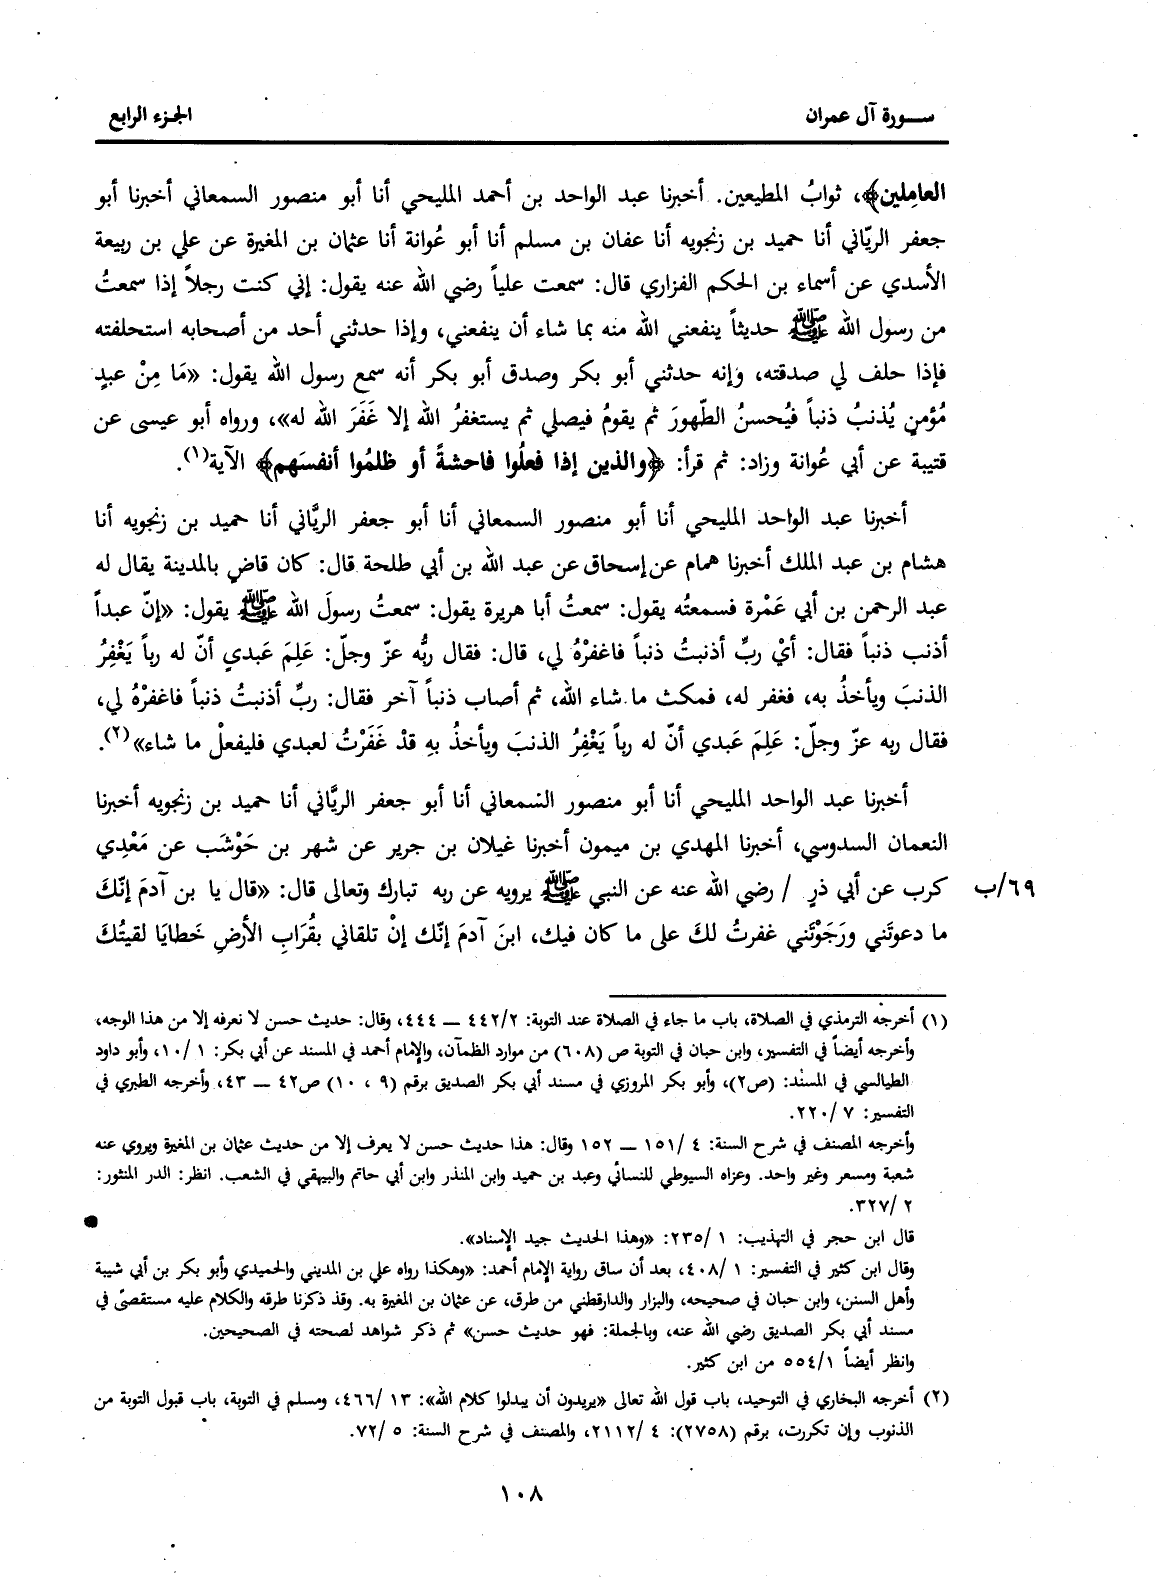 سـورة آل عمران
الجزء الرابع
العامِلين﴾، ثوابُ المطيعين. أخبرنا عبد الواحد بن أحمد المليحي أنا أبو منصور السمعاني أخبرنا أبو
جعفر الريّاني أنا حميد بن زنجويه أنا عفان بن مسلم أنا أبو عُوانة أنا عثمان بن المغيرة عن علي بن ربيعة
الأسدي عن أسماء بن الحكم الفزاري قال: سمعت علياً رضي الله عنه يقول: إني كنت رجلاً إذا سمعتُ
من رسول الله ﷺ حديثاً ينفعني الله منه بما شاء أن ينفعني، وإذا حدثني أحد من أصحابه استحلفته
فإذا حلف لي صدقته، وإنه حدثني أبو بكر وصدق أبو بكر أنه سمع رسول الله يقول: «مَا مِنْ عبدٍ
مُؤمنٍ يُذنبُ ذنباً فيُحسنُ الطّهورَ ثم يقومُ فيصلي ثم يستغفرُ الله إلا غَفَرَ الله له»، ورواه أبو عيسى عن
قتيبة عن أبي عُوانة وزاد: ثم قرأ: ﴿والذين إذا فعلُوا فاحشةً أو ظلمُوا أنفسَهم﴾ الآية(١).
أخبرنا عبد الواحد المليحي أنا أبو منصور السمعاني أنا أبو جعفر الريَّاني أنا حميد بن زنجويه أنا
هشام بن عبد الملك أخبرنا همام عن إسحاق عن عبد الله بن أبي طلحة قال: كان قاضٍ بالمدينة يقال له
عبد الرحمن بن أبي عَمْرة فسمعته يقول: سمعتُ أبا هريرة يقول: سمعتُ رسولَ الله ﷺ يقول: «إنّ عبداً
أذنب ذنباً فقال: أيْ ربِّ أذنبتُ ذنباً فاغفرْهُ لي، قال: فقال ربُّه عزّ وجلّ: عَلِمَ عَبدي أنّ له رباً يَغْفِرُ
الذنبَ ويأخذُ به، فغفر له، فمكث ما شاء الله، ثم أصاب ذنباً آخر فقال: ربِّ أذنبتُ ذنباً فاغفرْهُ لي،
فقال ربه عزّ وجلّ: عَلِمَ عَبدي أنّ له رباً يَغْفِرُ الذنبَ ويأخذُ بهِ قدْ غَفَرْتُ لعبدي فليفعلْ ما شاء»(٢).
أخبرنا عبد الواحد المليحي أنا أبو منصور السمعاني أنا أبو جعفر الريَّاني أنا حميد بن زنجويه أخبرنا
النعمان السدوسي، أخبرنا المهدي بن ميمون أخبرنا غيلان بن جرير عن شهر بن حَوْشَب عن مَعْدِي
٦٩/ب كرب عن أبي ذرٍ / رضي الله عنه عن النبي ﷺ يرويه عن ربه تبارك وتعالى قال: «قال يا بن آدمَ إنّكَ
ما دعوتَني ورَجَوْتَني غفرتُ لكَ على ما كان فيك، ابنَ آدمَ إنّك إنْ تلقاني بقُرَابِ الأرضِ خَطايَا لقيتُكَ
(١) أخرجه الترمذي في الصلاة، باب ما جاء في الصلاة عند التوبة: ٤٤٢/٢ ــ ٤٤٤، وقال: حديث حسن لا نعرفه إلا من هذا الوجه،
وأخرجه أيضاً في التفسير، وابن حبان في التوبة ص (٦٠٨) من موارد الظمآن، والإمام أحمد في المسند عن أبي بكر: ١ /١٠، وأبو داود
الطيالسي في المسند: (ص٢)، وأبو بكر المروزي في مسند أبي بكر الصديق برقم (٩ ، ١٠) ص٤٢ ــ ٤٣، وأخرجه الطبري في
التفسير: ٧ /٢٢٠.
وأخرجه المصنف في شرح السنة: ٤ /١٥١ ــ ١٥٢ وقال: هذا حديث حسن لا يعرف إلا من حديث عثمان بن المغيرة ويروي عنه
شعبة ومسعر وغير واحد. وعزاه السيوطي للنسائي وعبد بن حميد وابن المنذر وابن أبي حاتم والبيهقي في الشعب. انظر: الدر المنثور:
٢ /٣٢٧.
قال ابن حجر في التهذيب: ١ /٢٣٥: «وهذا الحديث جيد الإسناد».
وقال ابن كثير في التفسير: ١ /٤٠٨، بعد أن ساق رواية الإمام أحمد: «وهكذا رواه علي بن المديني والحميدي وأبو بكر بن أبي شيبة
وأهل السنن، وابن حبان في صحيحه، والبزار والدارقطني من طرق، عن عثمان بن المغيرة به. وقد ذكرنا طرقه والكلام عليه مستقصىً في
مسند أبي بكر الصديق رضي الله عنه، وبالجملة: فهو حديث حسن» ثم ذكر شواهد لصحته في الصحيحين.
وانظر أيضاً ٥٥٤/١ من ابن كثير.
(٢) أخرجه البخاري في التوحيد، باب قول الله تعالى «يريدون أن يبدلوا كلام الله»: ١٣ /٤٦٦، ومسلم في التوبة، باب قبول التوبة من
الذنوب وإن تكررت، برقم (٢٧٥٨): ٤ /٢١١٢، والمصنف في شرح السنة: ٥ /٧٢.
١٠٨